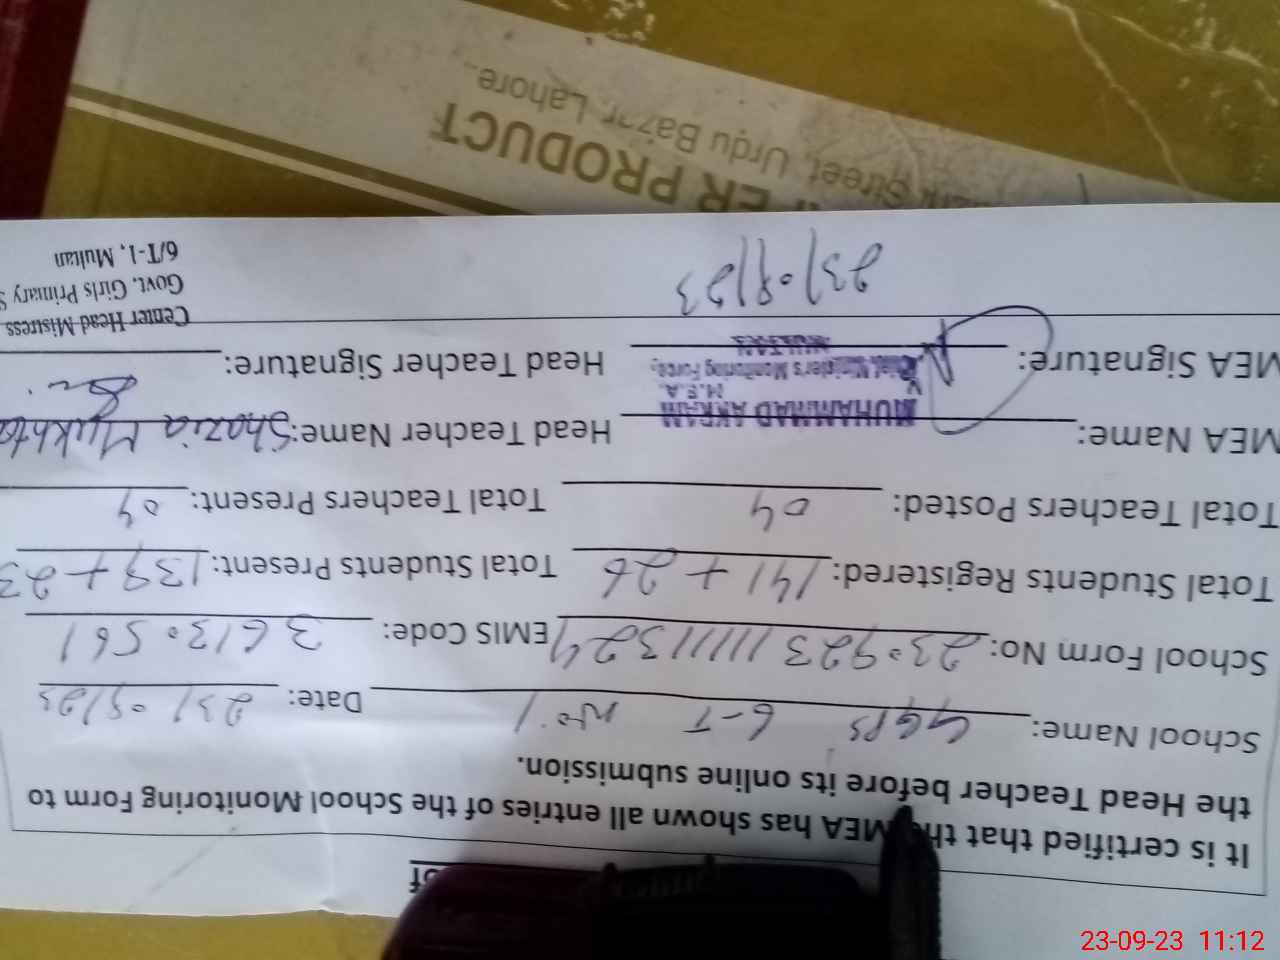 It is certified that the MEA has shown all entries of the School Monitoring Form to
the Head Teacher before its online submission.
School Name: GGPS 6-T No 1 Date: 23/09/23
School Form No: EMIS Code: 36130561
Total Students Registered: 141 + 26 Total Students Present: 139 + 23
Total Teachers Posted: 04 Total Teachers Present: 04
MEA Name: MUHAMMAD AKRAM Head Teacher Name: Shazia
M.E.A.
Chief Minister's Monitoring Force,
MULTAN
MEA Signature: Head Teacher Signature:
Center Head Mistress
Govt. Girls Primary
6/T-1, Multan
23/09/23
PRODUCT
Street, Urdu Bazar, Lahore.
23-09-23 11:12